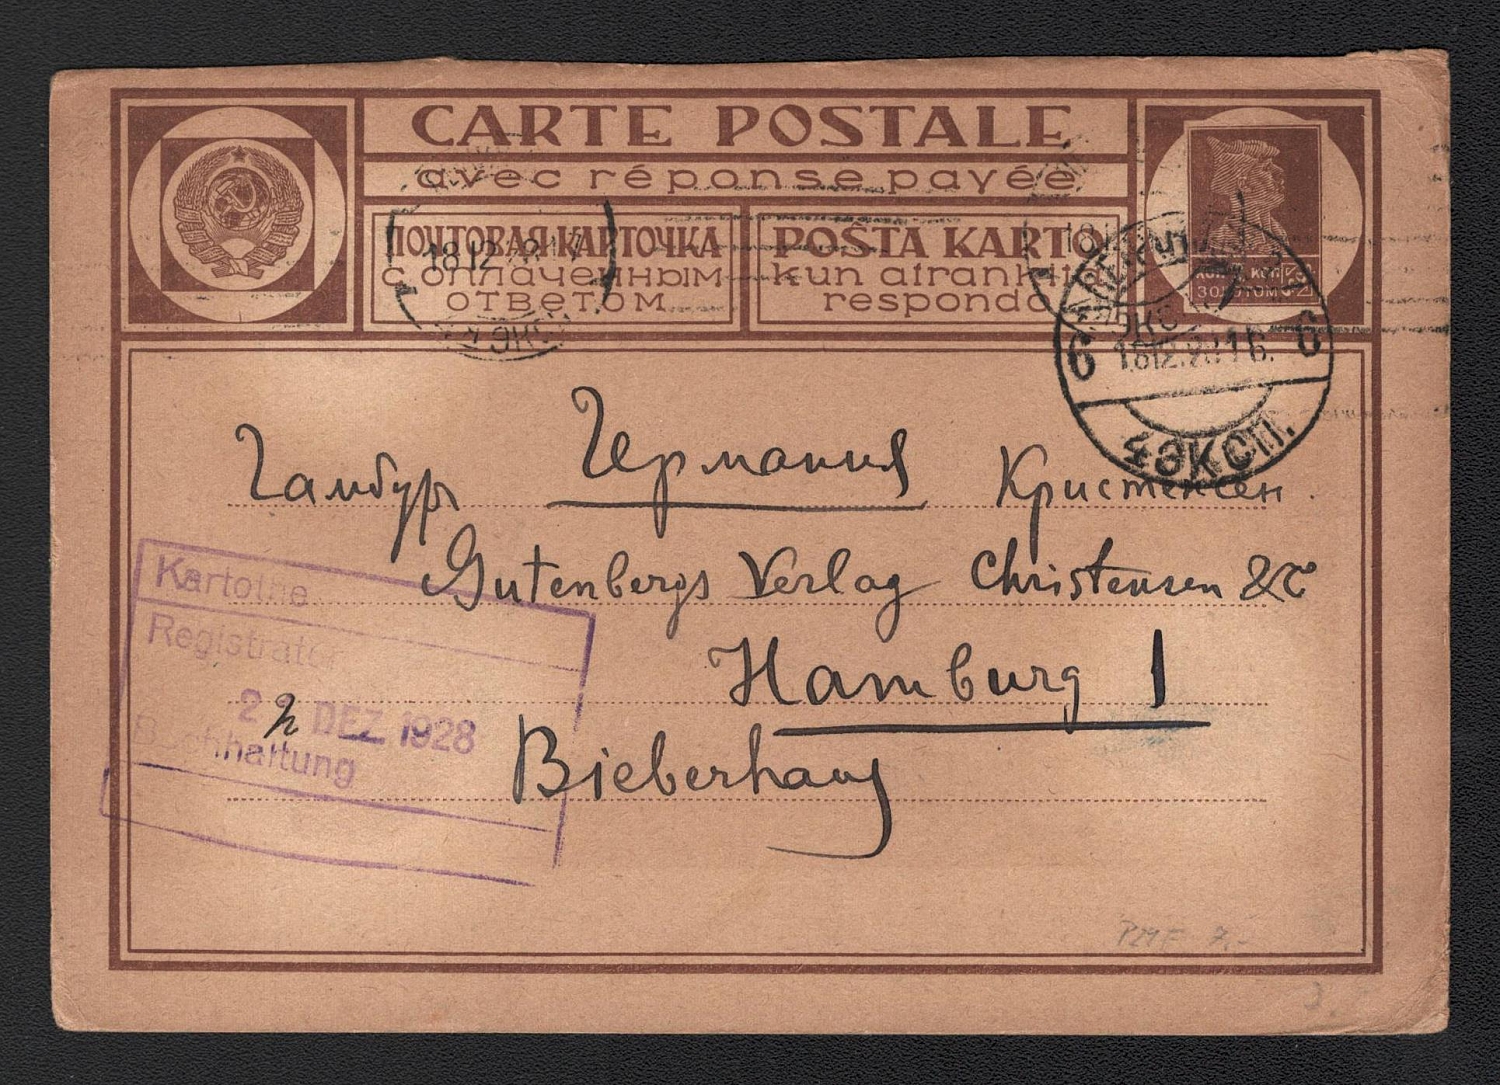 CARTE POSTALE
avec réponse payée
ПОЧТОВАЯ КАРТОЧКА
с оплаченным
ответом
POŜTA KARTO
kun afrankita
respondo
КОП.
ЗОЛОТОМ
18 12
18.12.28 16.
6 6
4 ЭКСП.
Германия
Гамбург Кристенсен
Gutenbergs Verlag Christensen & C
Hamburg 1
Bieberhaus
Kartothe
Registrator
22 DEZ 1928
Buchhaltung